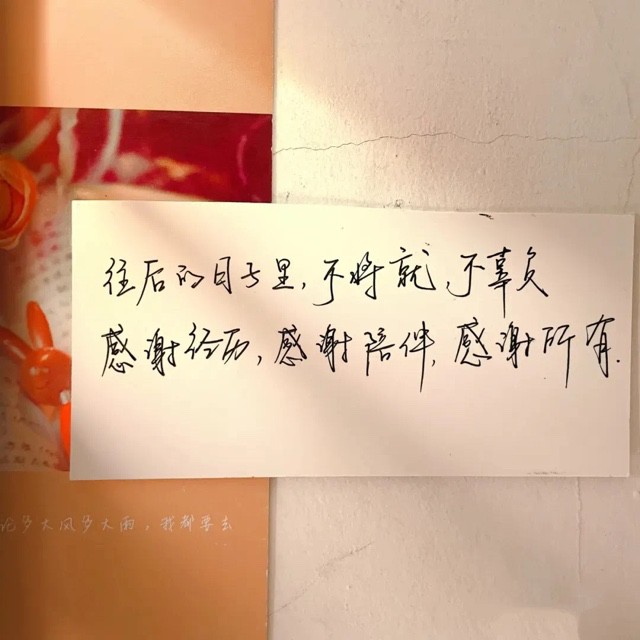 往后的日子里,不将就,不辜负
感谢经历,感谢陪伴,感谢所有.
论多大风多大雨,我都要去